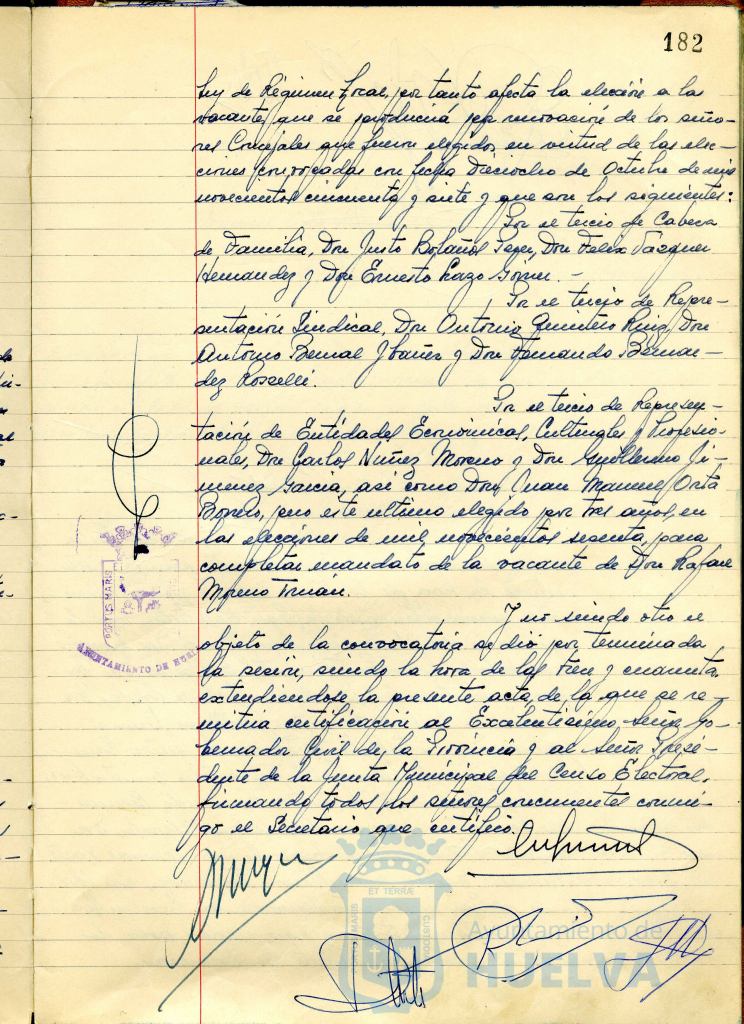 182
Ley de Régimen Local, por tanto afecta la elección a las
vacantes que se producirá por renovación de los seño-
res Concejales que fueron elegidos en virtud de las elec-
ciones convocadas con fecha Dieciocho de Octubre de mil
novecientos cincuenta y siete y que son los siguientes:
Por el tercio de Cabeza
de Familia, Don Justo Bolaños Don Felix Vazquez
Hernandez y Don Ernesto Lazo Gómez. -
Por el tercio de Repre-
sentación Sindical, Don Antonio Quintero Ruiz, Don
Antonio Bernal Ybañez y Don Fernando Bernar-
dez Roselli.
Por el tercio de Represen-
tación de Entidades Económicas, Culturales y Profesio-
nales, Don Carlos Nuñez Moreno y Don Guillermo Ji-
menez Garcia, así como Don Juan Manuel Orta
Borrero, pero este ultimo elegido por tres años, en
las elecciones de mil novecientos sesenta, para
completar mandato de la vacante de Don Rafael
Moreno
Y no siendo otro el
objeto de la convocatoria se dió por terminada
la sesión, siendo la hora de las trece y cuarenta,
extendiendose la presente acta, de la que se re-
mitirá certificación al Excelentisimo Señor Go-
bernador Civil de la Provincia y al Señor Presi-
dente de la Junta Municipal del Censo Electoral,
firmando todos los señores concurrentes conmi-
go el Secretario que certifico.
PORTUS MARIS
AYUNTAMIENTO DE HUEL
ET TERRÆ
PORTUS MARIS
CUSTODIA
Ayuntamiento de
HUELVA